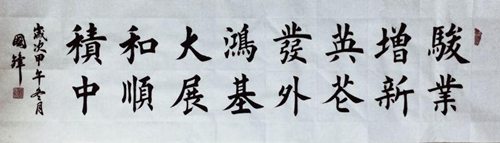 駿業
增新
英苍
發外
鴻基
大展
和順
積中
歲次甲午冬月
國鋒